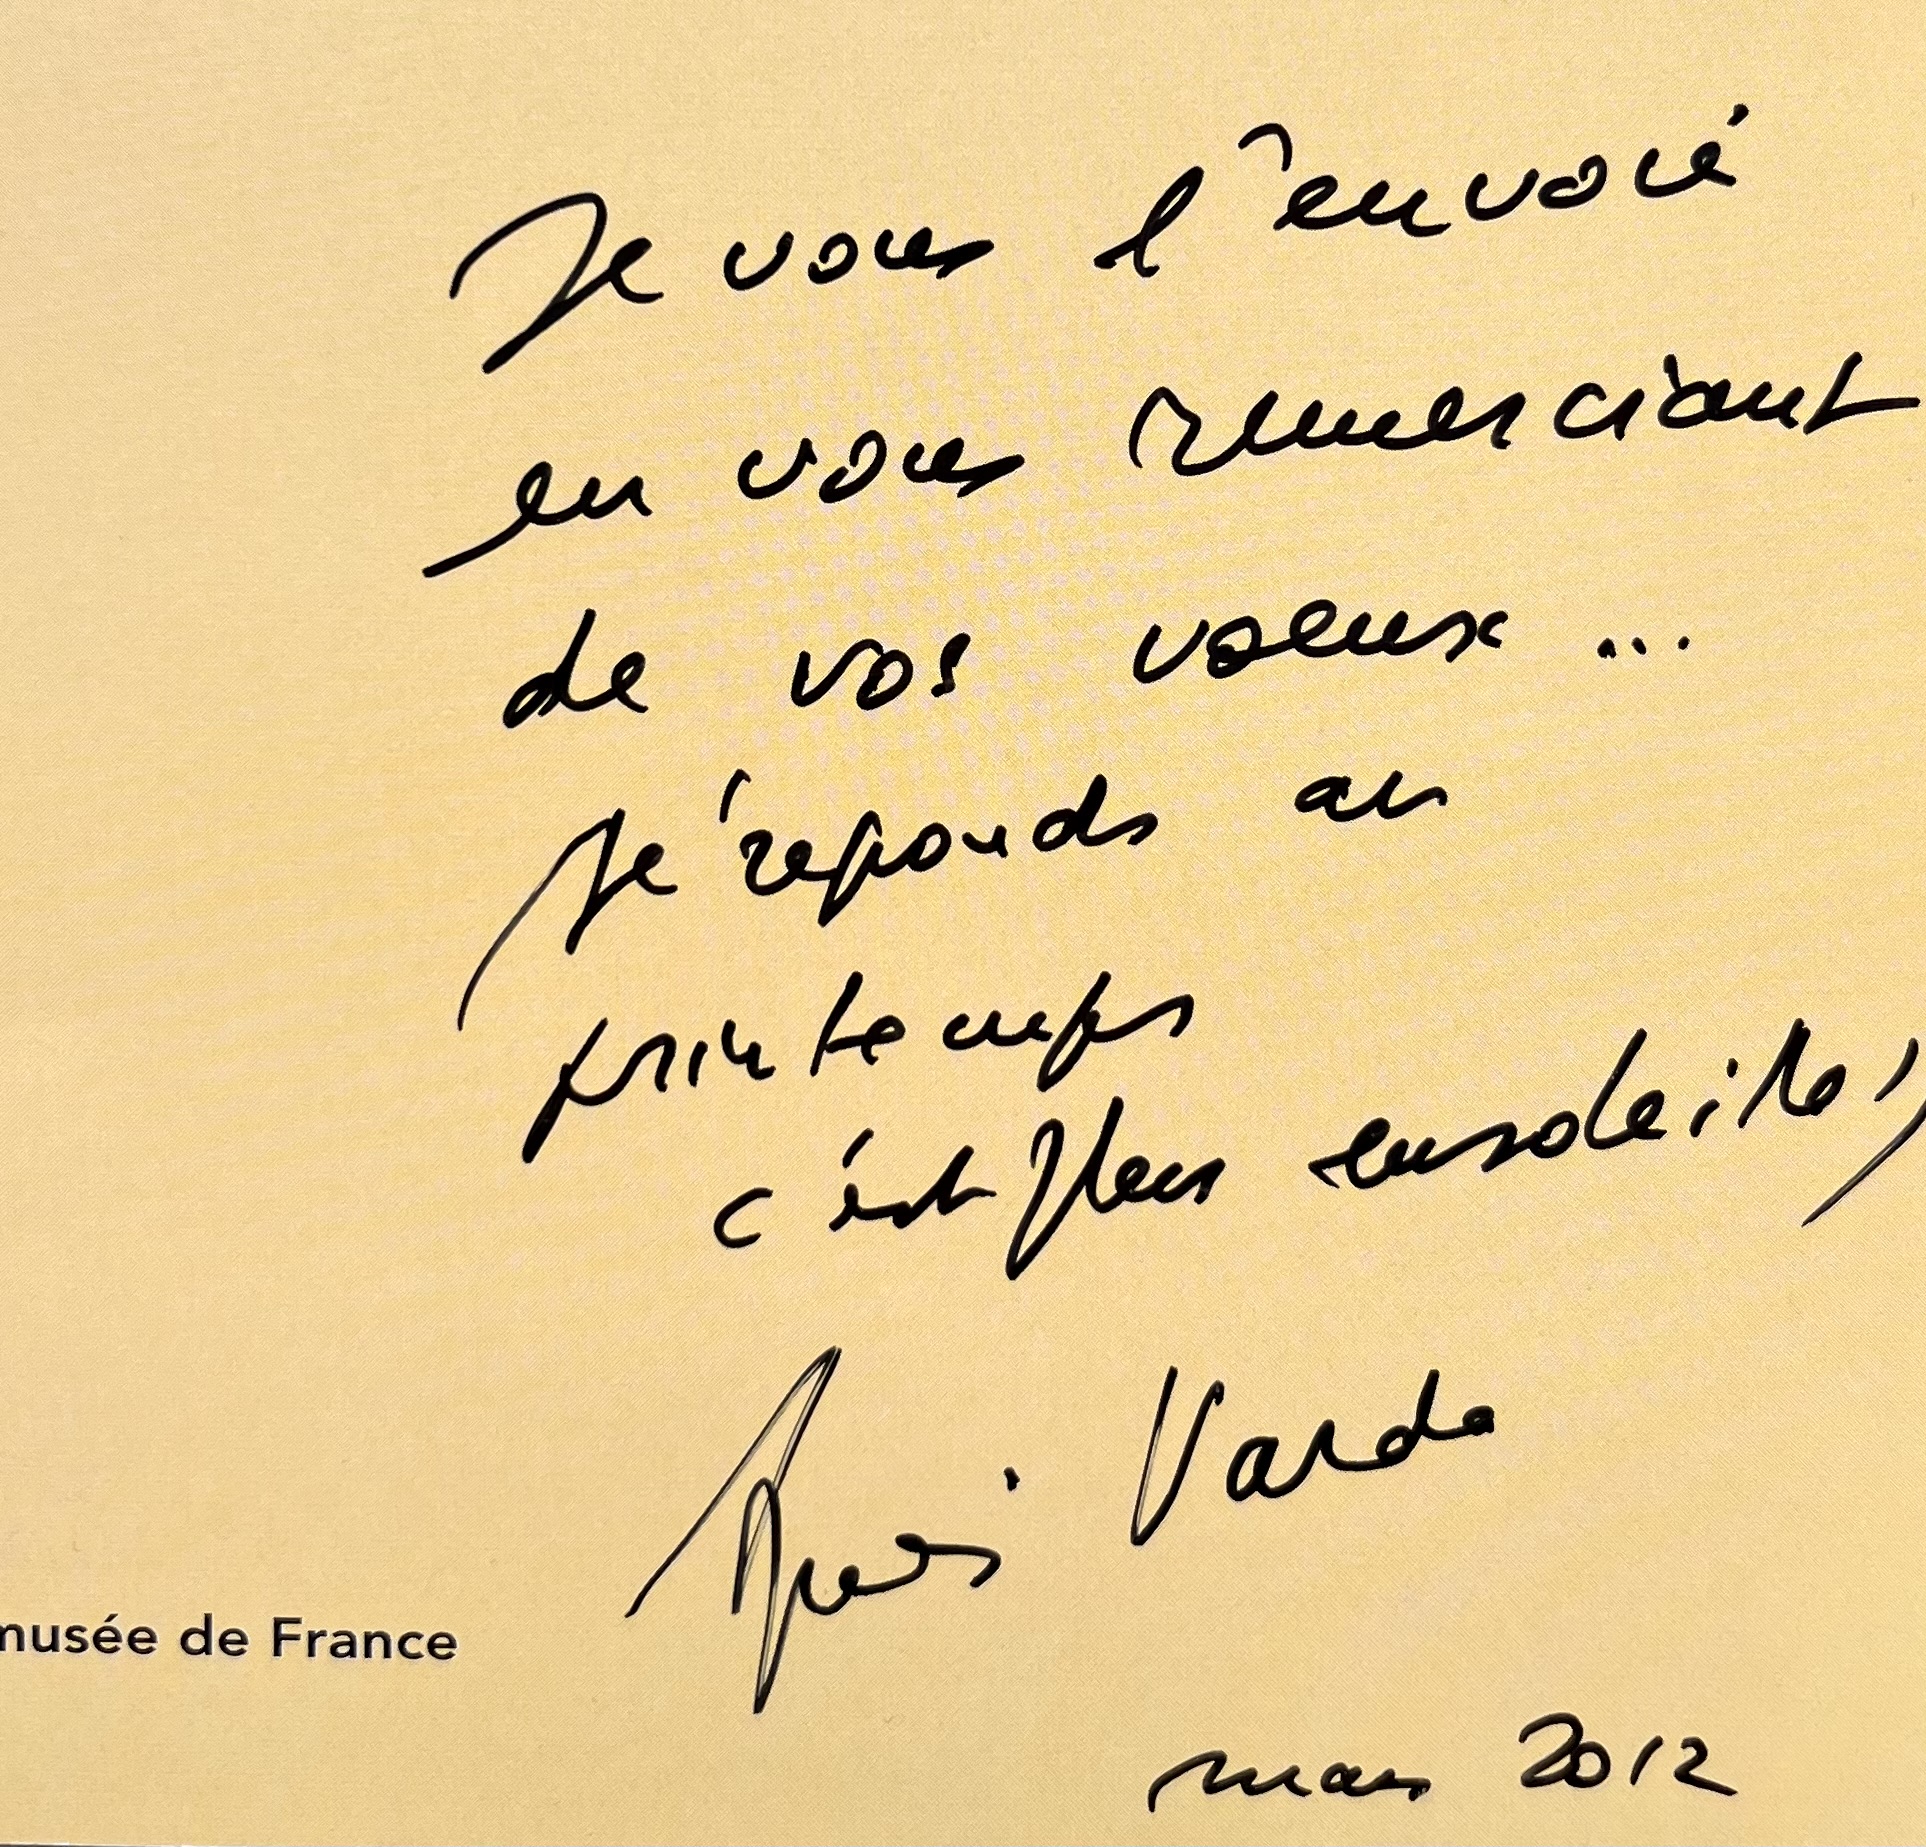 Je vous l'envoie
en vous remerciant
de vos voeux ...
Je réponds au
printemps
c'est plus ensoleillé,
Agnès Varda
musée de France
mars 2012